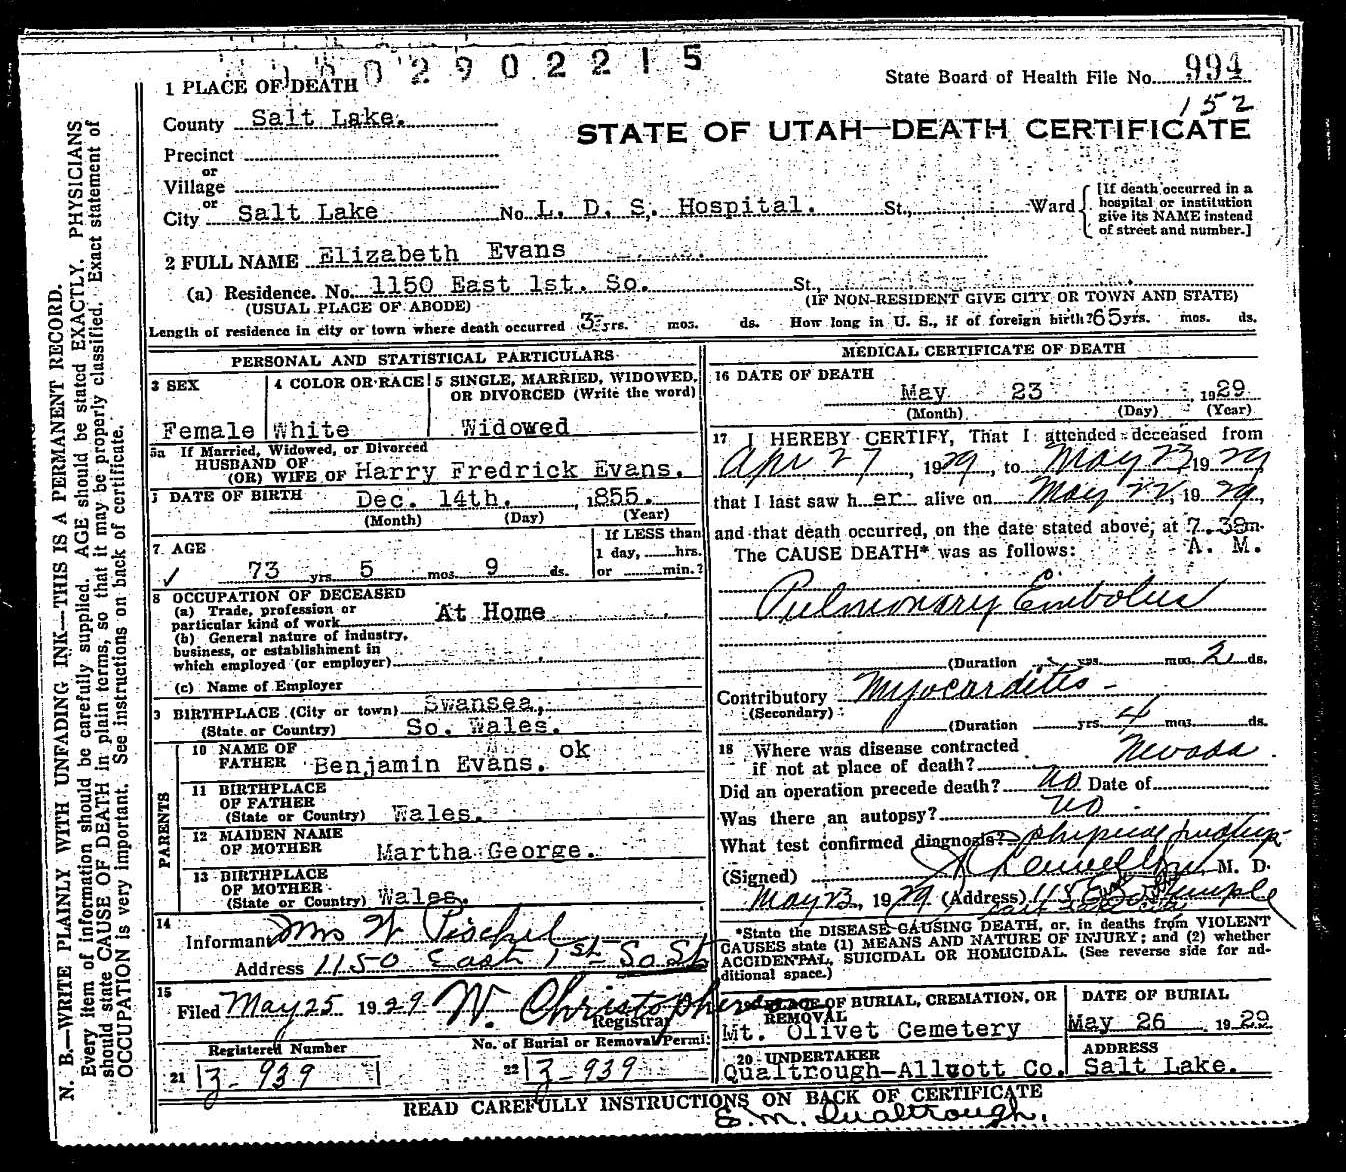 2902215
State Board of Health File No. 994
152
1 PLACE OF DEATH
County Salt Lake.
STATE OF UTAH—DEATH CERTIFICATE
Precinct
or
Village
or
City Salt Lake No. L. D. S. Hospital. St., Ward
[If death occurred in a hospital or institution give its NAME instead of street and number.]
2 FULL NAME Elizabeth Evans
(a) Residence. No. 1150 East 1st. So. St.,
(USUAL PLACE OF ABODE) (IF NON-RESIDENT GIVE CITY OR TOWN AND STATE)
Length of residence in city or town where death occurred 3 yrs. mos. ds. How long in U. S., if of foreign birth? 65 yrs. mos. ds.
PERSONAL AND STATISTICAL PARTICULARS
3 SEX 4 COLOR OR RACE 5 SINGLE, MARRIED, WIDOWED,
OR DIVORCED (Write the word)
Female White Widowed
5a If Married, Widowed, or Divorced
HUSBAND OF
(OR) WIFE OF Harry Fredrick Evans.
DATE OF BIRTH Dec. 14th. , 1855.
(Month) (Day) (Year)
7 AGE If LESS than
1 day, hrs.
73 yrs. 5 mos. 9 ds. or min.?
8 OCCUPATION OF DECEASED
(a) Trade, profession or
particular kind of work At Home
(b) General nature of industry,
business, or establishment in
which employed (or employer)
(c) Name of Employer
9 BIRTHPLACE (City or town) Swansea,
(State or Country) So. Wales.
PARENTS
10 NAME OF
FATHER Benjamin Evans. ok
11 BIRTHPLACE
OF FATHER
(State or Country) Wales.
12 MAIDEN NAME
OF MOTHER Martha George.
13 BIRTHPLACE
OF MOTHER
(State or Country) Wales.
14
Informant Mrs W Pischel
Address 1150 East 1st So St
15
Filed May 25 1929 W. Christophersen
Registrar
Registered Number No. of Burial or Removal Permit
21 Z-939 22 Z-939
MEDICAL CERTIFICATE OF DEATH
16 DATE OF DEATH
May 23 , 1929
(Month) (Day) (Year)
17 I HEREBY CERTIFY, That I attended deceased from
Apr 27, 1929, to May 23, 1929
that I last saw her alive on May 22, 1929,
and that death occurred, on the date stated above, at 7.38 m.
The CAUSE DEATH* was as follows: A. M.
Pulmonary Embolus
(Duration yrs. mos. 2 ds.
Contributory Myocarditis -
(Secondary)
(Duration yrs. 4 mos. ds.
18 Where was disease contracted
if not at place of death? Nevada
Did an operation precede death? no Date of
Was there an autopsy? no
What test confirmed diagnosis? physical findings
(Signed) M. D.
May 23, 1929 (Address) 115 E So Temple
Salt Lake
*State the DISEASE CAUSING DEATH, or, in deaths from VIOLENT
CAUSES state (1) MEANS AND NATURE OF INJURY; and (2) whether
ACCIDENTAL, SUICIDAL OR HOMICIDAL. (See reverse side for additional space.)
19 PLACE OF BURIAL, CREMATION, OR
REMOVAL
Mt. Olivet Cemetery
DATE OF BURIAL
May 26 1929
20 UNDERTAKER
Qualtrough-Allcott Co.
ADDRESS
Salt Lake.
READ CAREFULLY INSTRUCTIONS ON BACK OF CERTIFICATE
E. M. Qualtrough.
N. B.—WRITE PLAINLY WITH UNFADING INK—THIS IS A PERMANENT RECORD.
Every item of information should be carefully supplied. AGE should be stated EXACTLY. PHYSICIANS
should state CAUSE OF DEATH in plain terms, so that it may be properly classified. Exact statement of
OCCUPATION is very important. See instructions on back of certificate.